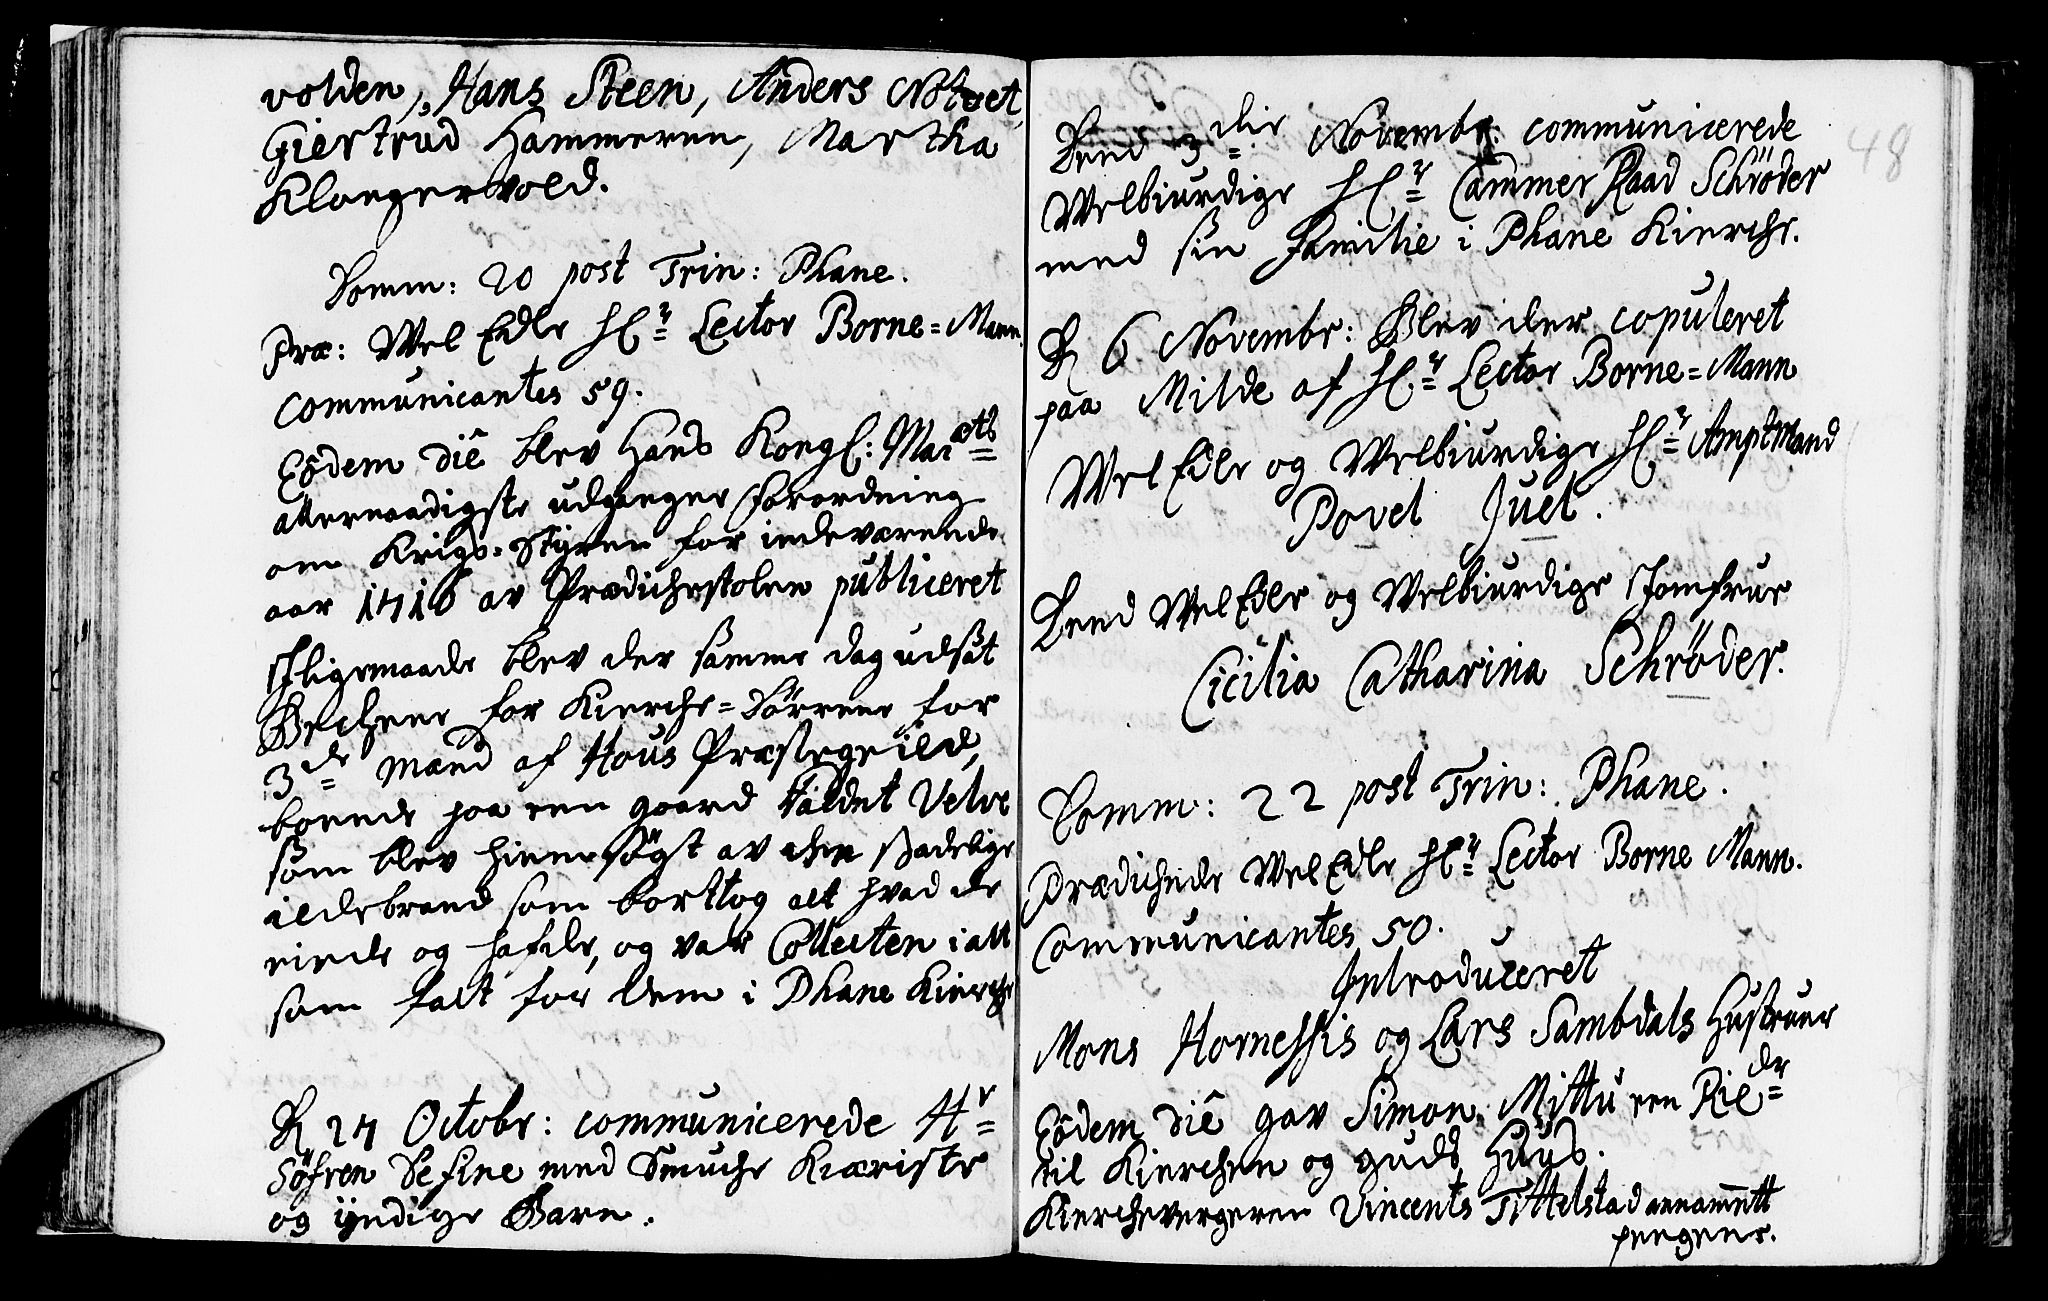 volden, Hans Steen, Anders Nötvet,
Giertrud Hammeren, Martha
Klongervold.
Domm: 20 post Trin: Phane.
Præ: Wel Edle Hr Lector Borne=Mann.
Communicantes 59.
Eôdem diê blev Hans Kongl: Maiets
allernaadigste udgangne Forordning
om Krigs=Styren for indeværende
aar 1716 av Prædichestolen publiceret
Iligemaade blev der samme dag udsat
Bechner for Kierche=Dörrene for
3de Mænd af Hous Præstegield,
boende paa een gaard kaldet Velve
som blev hiemsøgt av den skadelige
ildebrand som borttog alt hvad de
eiede og hafde, og var Collecten i alt
som falt for dem i Phane Kierche
D 27 Octobr: communicerede Hr
Söfren De fine med Smuche Kiæriste
og yndige Barn.
48
Dend 3die Novembr communicerede
Welbiurdige Hr Cammer Raad Schrøder
med sin Familie i Phane Kierche.
D 6 Novembr: Blev der copuleret
paa Milde af Hr Lector Borne=Mann
Wel Edle og Welbiurdige Hr Amptmand
Povel Juel.
Dend Wel Edle og Welbiurdige Jomfrue
Cicilia Catharina Schrøder.
Domm: 22 post Trin: Phane.
Prædichede Wel Edle Hr Lector Borne Mann.
Communicantes 50.
Introduceret
Mons Hornessis og Lars Sambdals Hustruer
Eôdem diê gav Simon Mittu een Rieder
til Kierchen og guds Huus.
Kierchevergeren Vincents Tittelstad annammett
pengene.